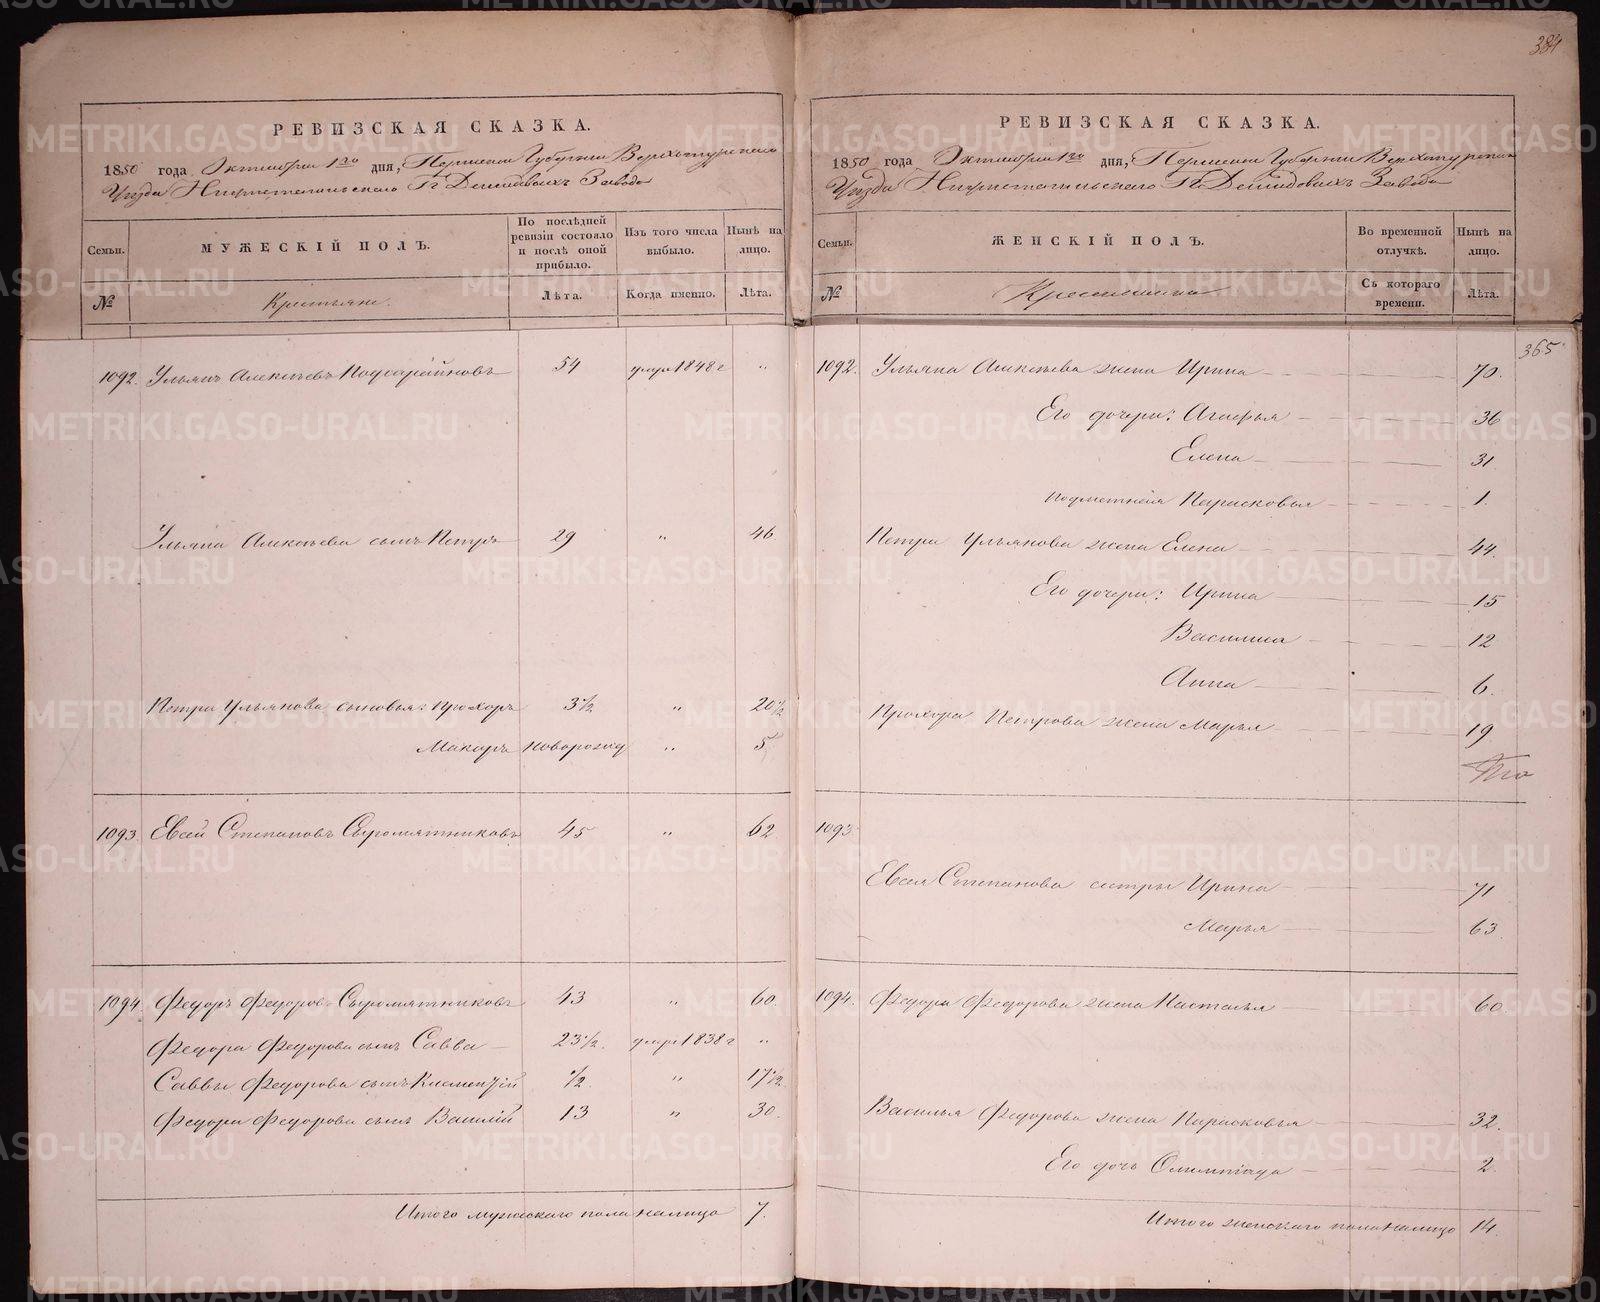 384
РЕВИЗСКАЯ СКАЗКА.
1850 года Октября 1го дня, Пермской Губерніи Верхотурскаго
Уѣзда Нижнетагильскаго Гг Демидовыхъ Завода
Семьи.
МУЖЕСКІЙ ПОЛЪ.
По послѣдней ревизіи состояло и послѣ оной прибыло.
Изъ того числа выбыло.
Нынѣ на лицо.
№
Крестьяне.
Лѣта.
Когда именно.
Лѣта.
1092. Ульянъ Алексѣевъ 54 умре 1848 г „
Ульяна Алексѣева сынъ Петръ 29 „ 46
Петра Ульянова сыновья: Прохоръ 3 1/2 „ 20 1/2
Макаръ новорожд „ 5
1093. Евсей Степановъ Сыромятниковъ 45 „ 62
1094. Федоръ Федоровъ Сыромятниковъ 43 „ 60.
Федора Федорова сынъ Савва 23 1/2. умре 1838 г „
Саввы Федорова сынъ Климентій 1/2. „ 17 1/2
Федора Федорова сынъ Василій 13 „ 30.
Итого мужескаго пола налицо 7.
РЕВИЗСКАЯ СКАЗКА.
1850 года Октября 1го дня, Пермской Губерніи Верхотурскаго
Уѣзда Нижнетагильскаго Гг Демидовыхъ Завода
Семьи.
ЖЕНСКІЙ ПОЛЪ.
Во временной отлучкѣ.
Нынѣ на лицо.
№
Съ котораго времени.
Лѣта.
365
1092. Ульяна Алексѣева жена Ирина 70.
Его дочери: Агафья 36
Елена 31
Парасковья 1.
Петра Ульянова жена Елена 44.
Его дочери: Ирина 15
Василиса 12
Анна 6.
Прохора Петрова жена Марья 19
1093
Евсея Степанова сестры Ирина 71
Марья 63
1094. Федора Федорова жена Настасья 60.
Василья Федорова жена Парасковья 32.
Его дочь Олимпіада 2.
Итого женскаго пола налицо 14.
METRIKI.GASO-URAL.RU